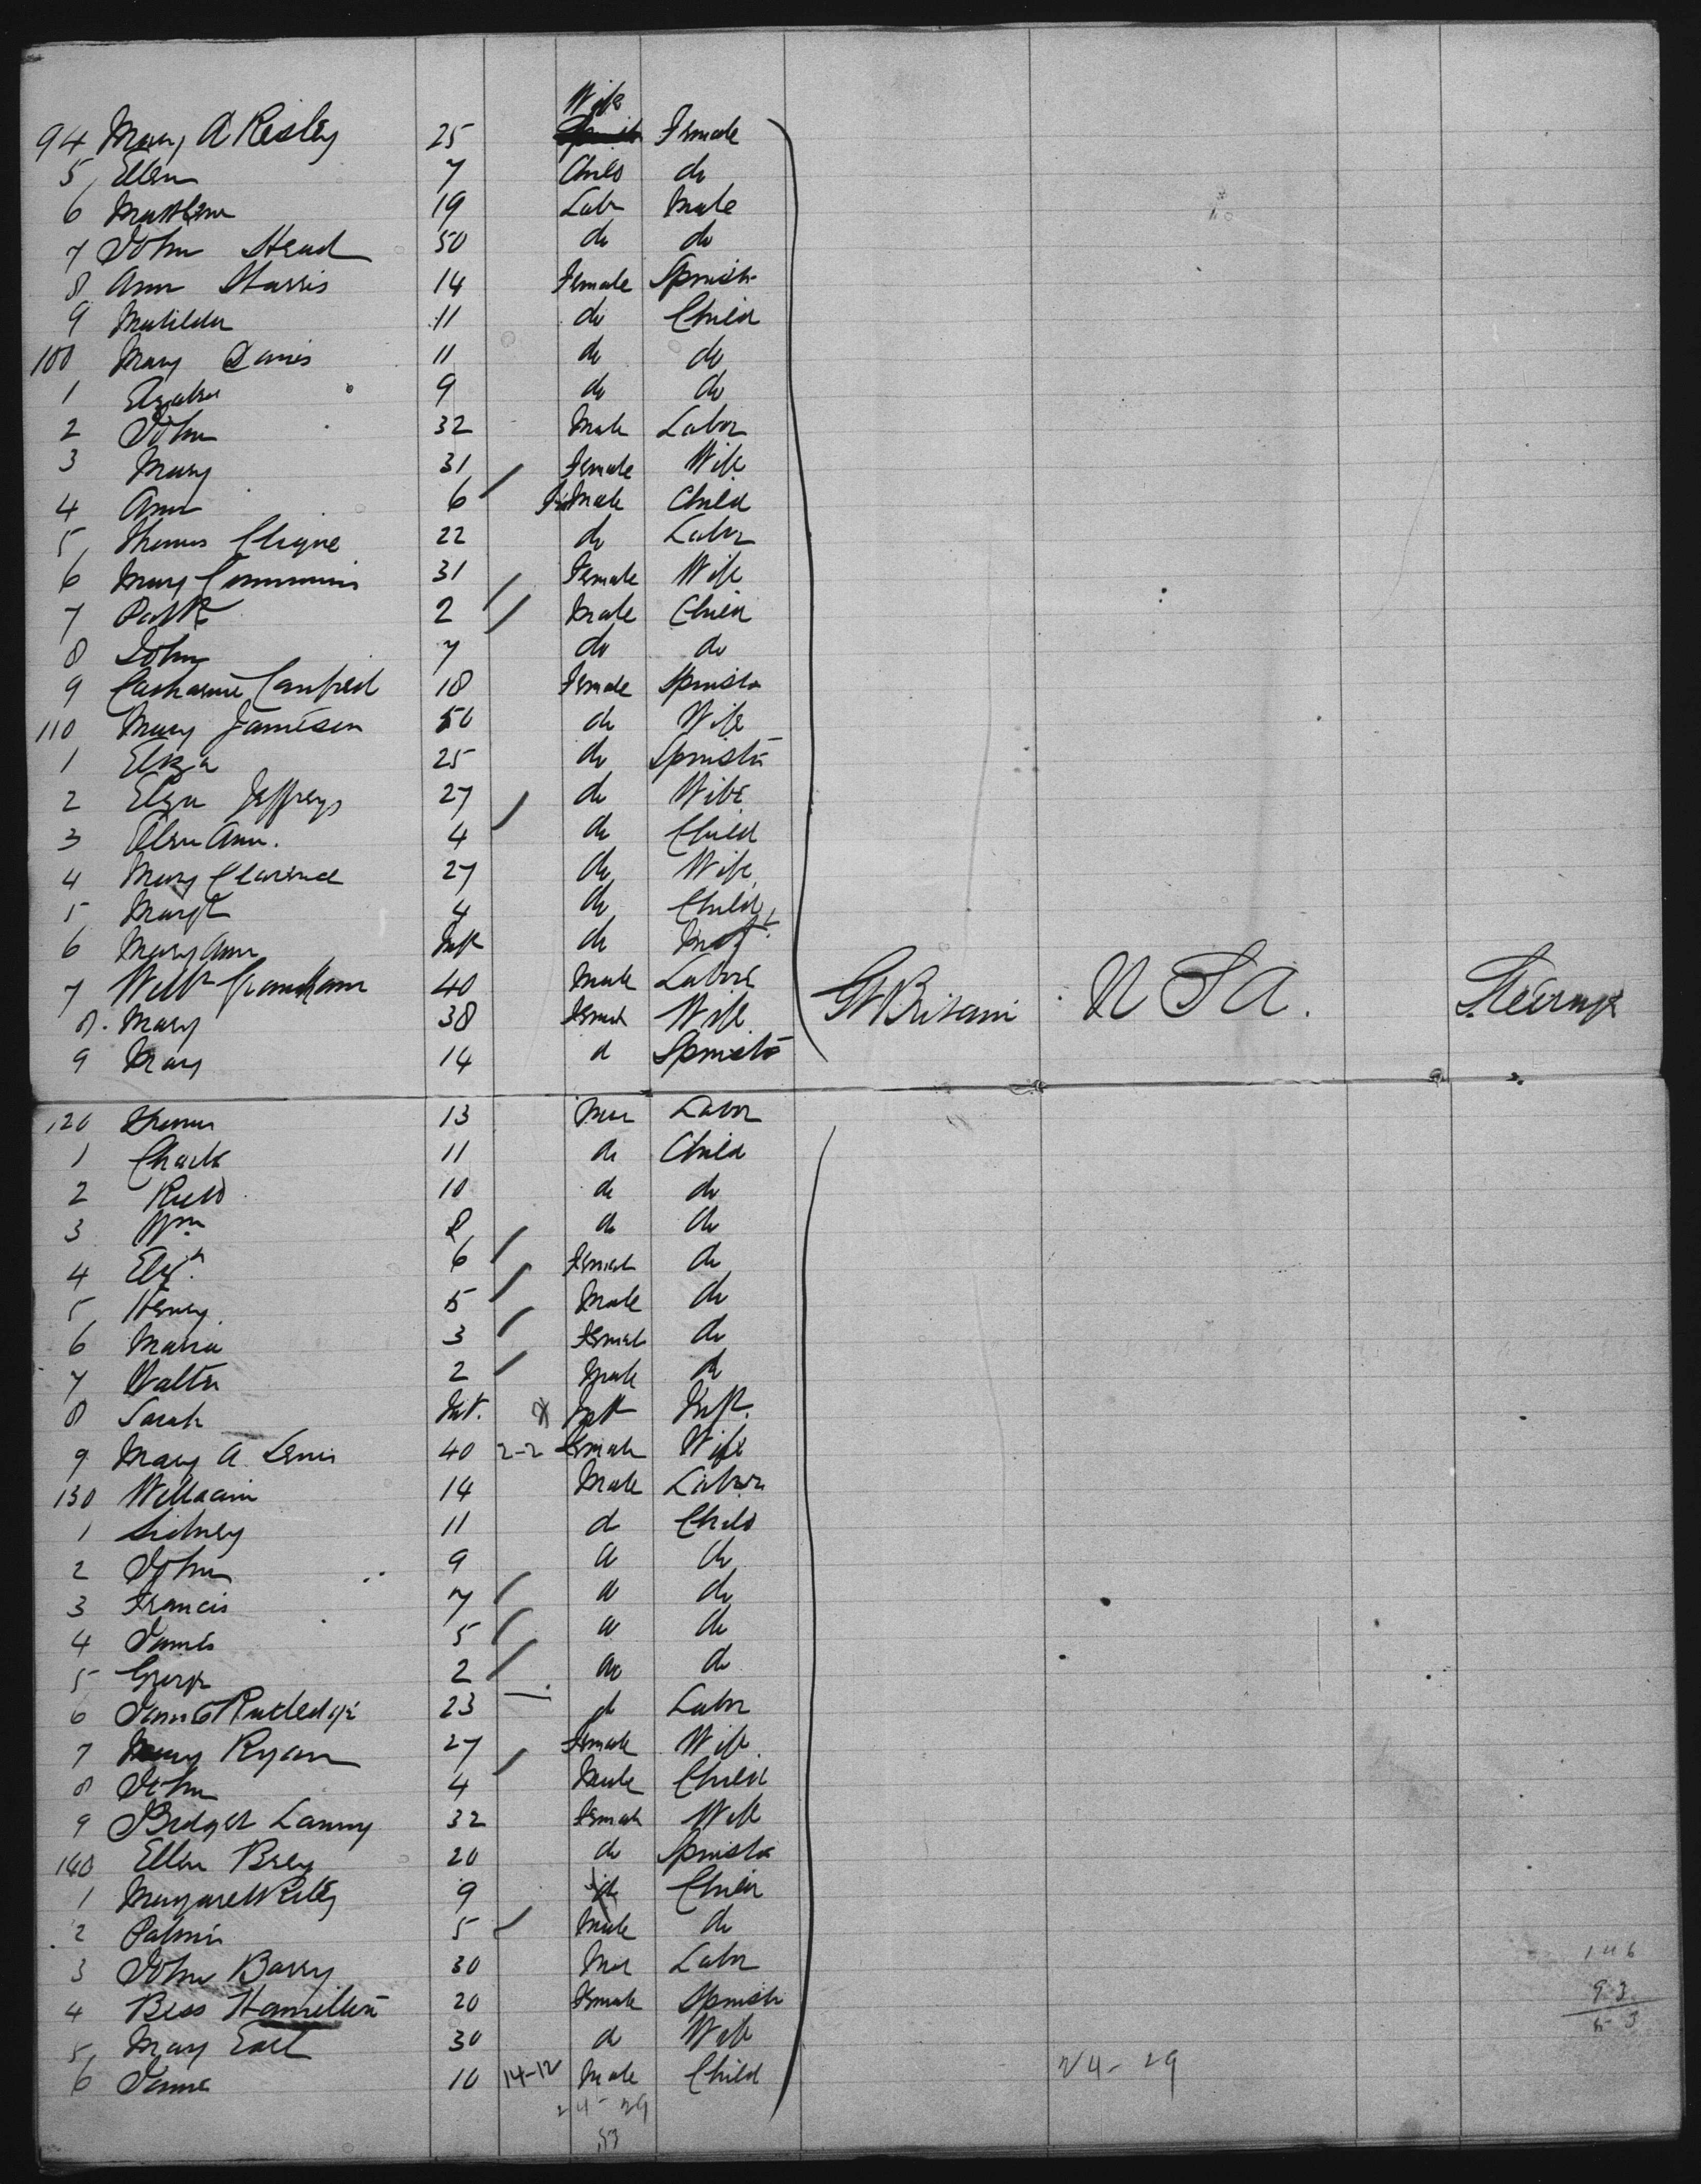 Wife
94 Mary A Risley 25 Female
5 Ellen 7 Child do
6 Matthew 19 Labr Male
7 John Head 50 do do
8 Ann Harris 14 Female Spinstr
9 Matilda 11 do Child
100 Mary Davis 11 do do
1 9 do do
2 John 32 Male Labor
3 Mary 31 Female Wife
4 Ann 6 Female Child
5 Thomas 22 do Labor
6 Mary Cummins 31 Female Wife
7 Patk 2 Male Child
8 John 7 do do
9 Catharine Canfield 18 Female Spinstr
110 Mary Jamieson 50 do Wife
1 Eliza 25 do Spinstr
2 Eliza Jeffreys 27 do Wife
3 Ellen Ann. 4 do Child
4 Mary 27 do Wife
5 Margt 4 do Child
6 Mary Ann Inft do Inft
7 Willm 40 Male Labor
8 Mary 38 Female Wife Gt Britain U S A. Steerage
9 Mary 14 d Spinstr
120 Thomas 13 Male Labor
1 Charls 11 do Child
2 10 do do
3 Wm 8 do do
4 Elizh 6 Female do
5 Henry 5 Male do
6 Maria 3 Female do
7 Walter 2 Male do
8 Sarah Inft. Inft Inft.
9 Mary A Lewis 40 2-2 Female Wife
130 William 14 Male Labor
1 Sidney 11 d Child
2 John 9 d do
3 Francis 7 d do
4 James 5 d do
5 George 2 do do
6 James Rutledge 23 d Labor
7 Mary Ryan 27 Female Wife
8 John 4 Male Child
9 Bridget Lanny 32 Female Wife
140 Ellen Brey 20 do Spinstr
1 Margaret Riley 9 do Child
2 5 Male do
3 John Barry 30 Male Labr
4 Bess Hamilton 20 Female Spinstr
5 Mary East 30 d Wife
6 10 14-12 Male Child 24-29
24-29
53
146
93
53